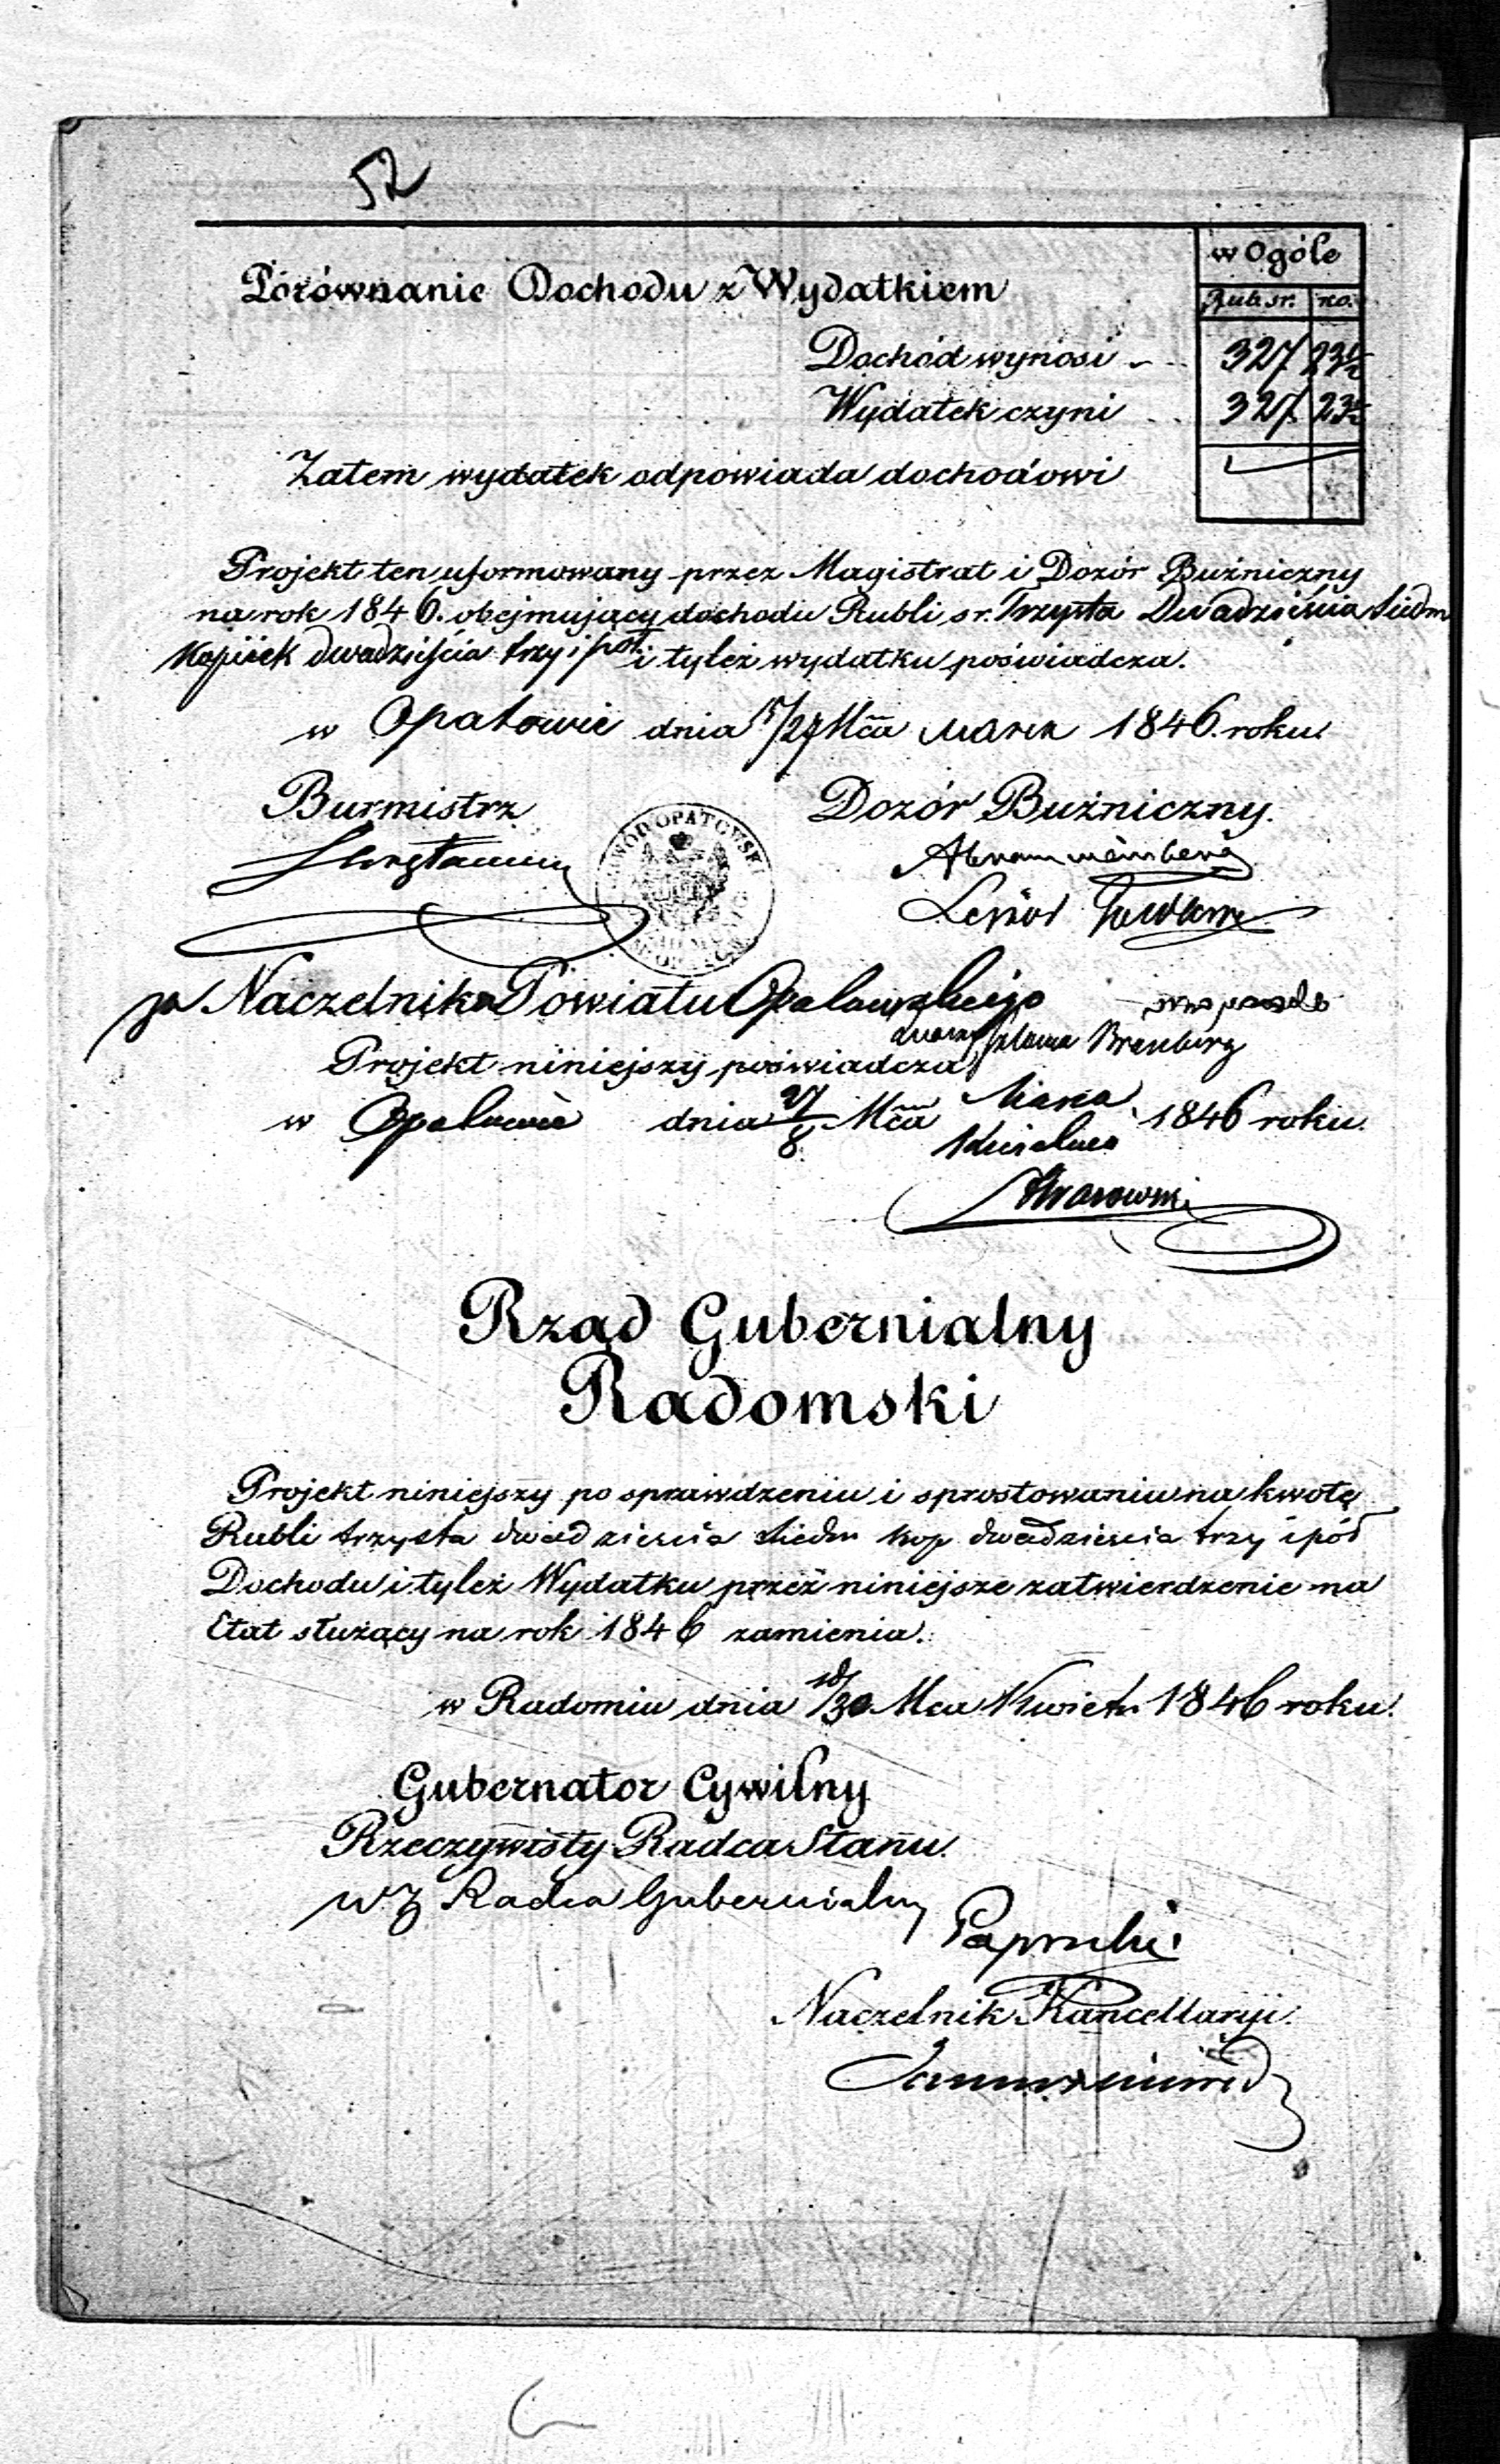 52
w Ogóle
Porównanie Dochodu z Wydatkiem
Rub sr. | ko.
Dochód wynosi 327 23½
Wydatek czyni 327 23½
Zatem wydatek odpowiada dochodowi
Projekt ten uformowany przez Magistrat i Dozór Bużniczny
na rok 1846. obejmujący dochodu Rubli sr. Trzysta Dwadzieścia Siedm
Kopiiek dwadzieścia trzy i pół i tyleż wydatku poświadcza.
w Opatowie dnia 15/27 Mca Marca 1846. roku.
Burmistrz
Dozór Bużniczny.
OPATOWSKI
Naczelnika Powiatu Opatowskiego
Projekt niniejszy poświadcza
w Opatowie dnia 27/8 Mca Marca 1846 roku.
Kwietnia
Rząd Gubernialny
Radomski
Projekt niniejszy po sprawdzeniu i sprostowaniu na kwotę
Rubli trzysta dwadzieścia siedm kop dwadzieścia trzy i pół
Dochodu i tyleż Wydatku przez niniejsze zatwierdzenie na
Etat służący na rok 1846 zamienia.
w Radomiu dnia 18/30 Mca Kwiet. 1846 roku.
Gubernator Cywilny
Rzeczywisty Radca Stanu.
W Z Radca Gubernialny
Paprocki
Naczelnik Kancellaryi.